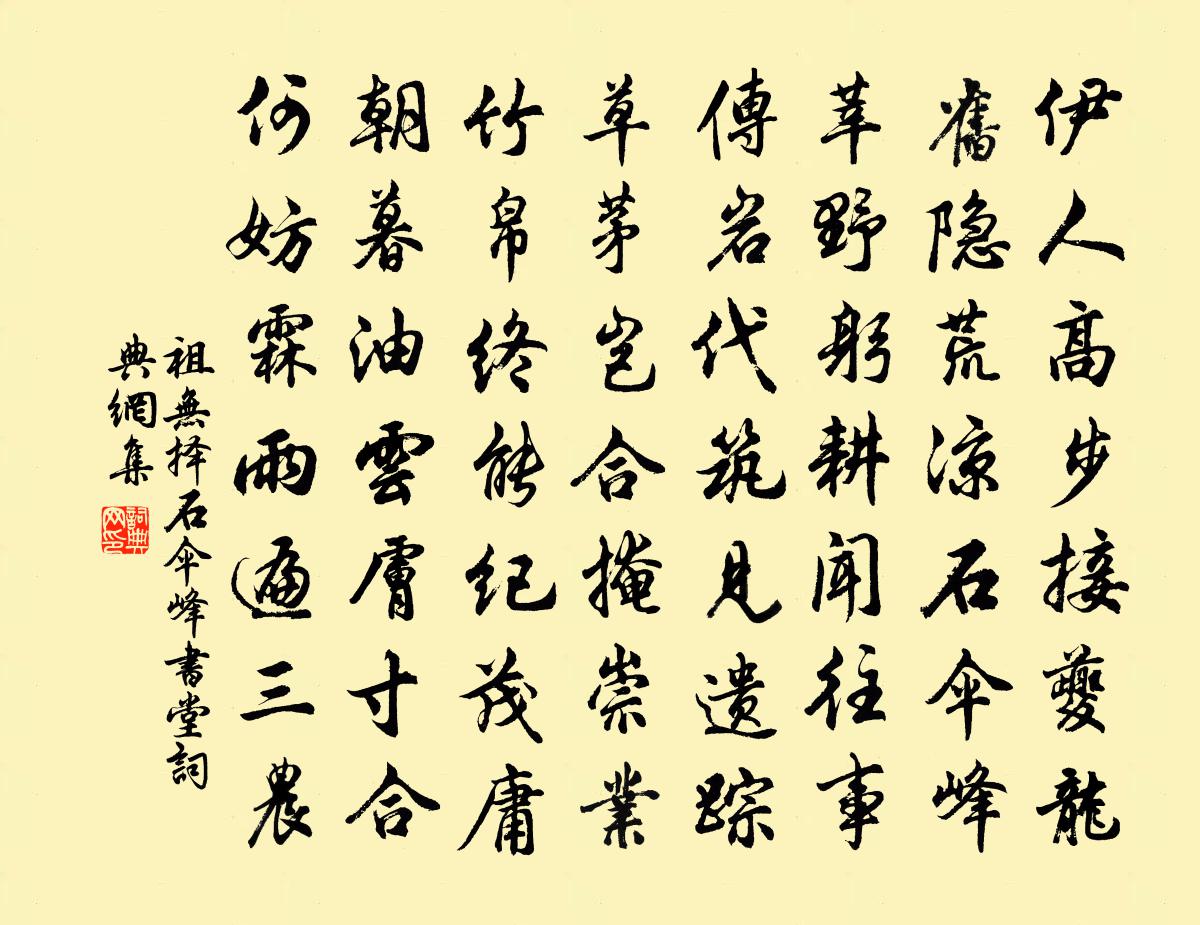 伊人高步接夔龍
舊隐荒凉石伞峰
莘野躬耕聞往事
傅岩代筑見遗踪
草茅岂合掩崇業
竹帛终能纪茂庸
朝暮油雲膚寸合
何妨霖雨遍三農
祖無择石伞峰書堂詞
典網集
詞典
网印